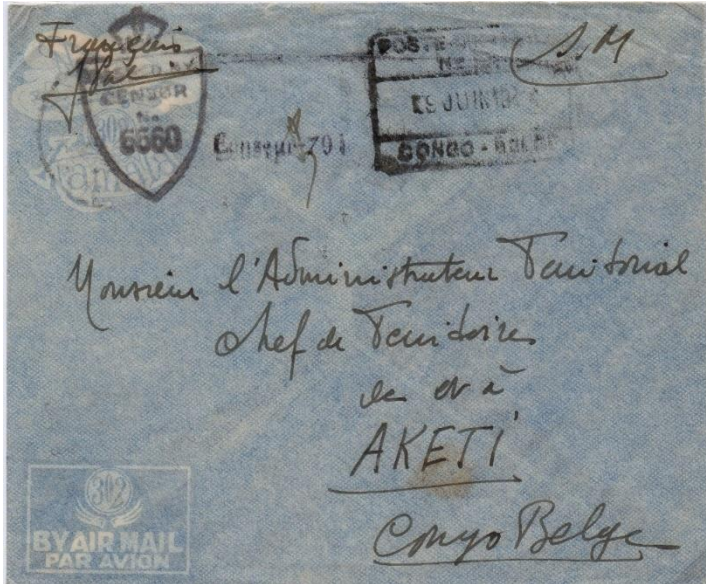 Français
S.M
CENSOR
No
6660
Censeur 794
POSTE
JUIN
CONGO - BELGE
Monsieur l'Administrateur Territorial
chef de Territoires
de et à
AKETI
Congo Belge
302
BY AIR MAIL
PAR AVION